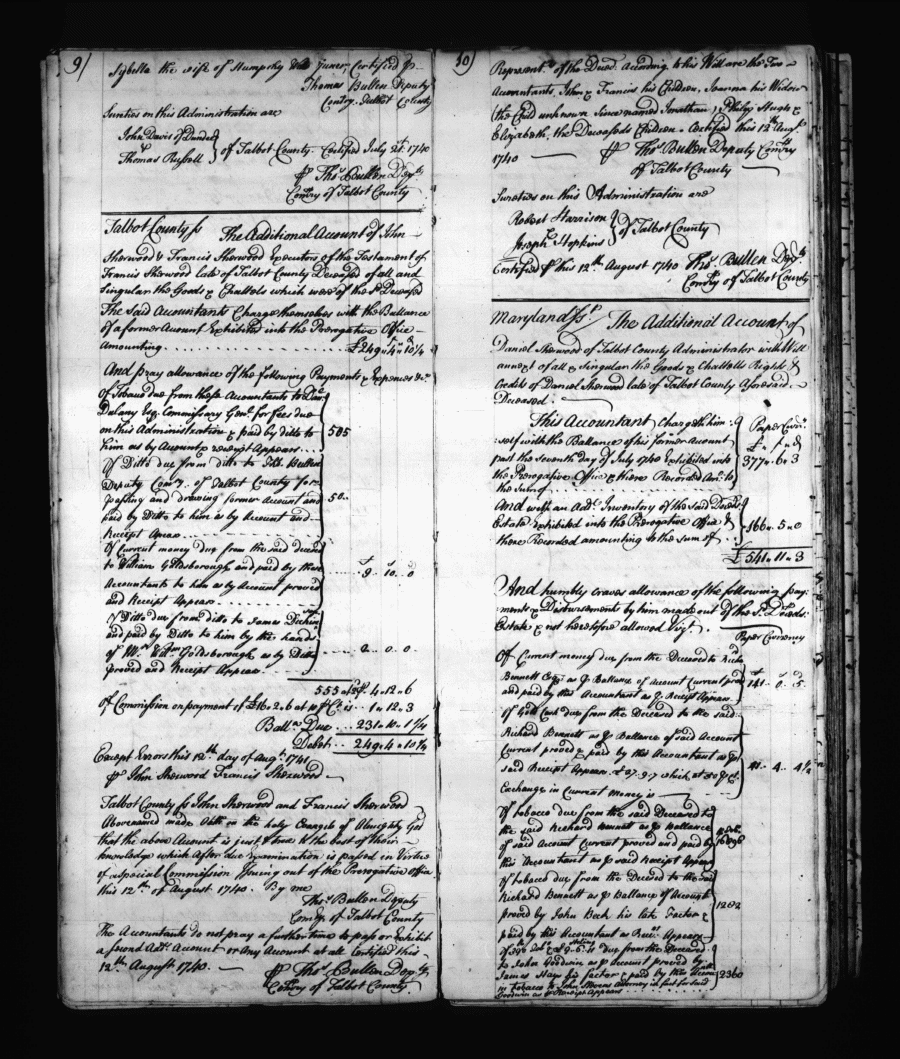 9/
Sybella the wife of Humphry Junr, Certified P
Thomas Bullen Deputy
Comry. Talbot County
Sureties on this Administration are
John Davis of Dundee
&
Thomas Russell
of Talbot County. Certified July 1740
P Thos. Bullen Depty.
Comry of Talbot County
Talbot County ss The Additional Account of John
Sherwood & Francis Sherwood Executors of the Testament of
Francis Sherwood late of Talbot County Deceased of all and
Singular the Goods & Chattels which were of the sd. Deceased
The said Accountants Charge themselves with the Ballance
of a former Account Exhibited into the Prerogative Office
Amounting . . . . . £249 " 4 " 10 1/4
And pray allowance of the following Payments & Expences &c.
Of Tobacco due from these Accountants to Danl.
Dulany Esq. Commissary Genl. for fees due
on this Administration & paid by ditto to
him as by Account & receipt Appears . . . 505
Of Ditto due from ditto to Thos. Bullen
Deputy Comry. of Talbot County for
passing and drawing former Account and
paid by Ditto to him as by Account and
Receipt Apear . . . 50 . .
Of Current money due from the said deceased
to William Goldsborough and paid by these
Accountants to him as by Account proved
and Receipt Appears . . . . 9 . 10 . 0
Of Ditto due from ditto to James
and paid by Ditto to him by the hands
of Mr. Willm. Goldsborough as by Ditto
proved and Receipt Appear . . . . 2 . 0 . 0
Of Commission on payment of £16 " 2 " 6 at 10 P Ct. is . 1 " 12 " 3
Balla. Due . . . 231 " 10 " 1 1/4
Debet . . 249 " 4 " 10 1/4
Except Errors this 12th day of Augt. 1741
P John Sherwood Francis Sherwood
Talbot County ss John Sherwood and Francis Sherwood
Abovenamed made Oath on the holy Evangels of Almighty God
that the above Account is just & true to the best of their
knowledge which after due Examination is passed in Virtue
of a special Commission Issuing out of the Prerogative Office
this 12th of August 1740. By me
Thos. Bullen Deputy
Comry. of Talbot County
The Accountants do not pray a further time to pass or Exhibit
a second Adl. Account or Any Account at all Certified this
12th August 1740.
P Thos. Bullen Depty.
Comry of Talbot County
10/
Representvs. of the Deced. According to his Will are the Two
Accountants, John & Francis his Children, Joanna his Widow
(the Child unknown Since named Jonathan) Philip Hugh &
Elizabeth, the Deceaseds Children. Certified this 12th Augt.
1740 P Thos. Bullen Deputy Comry
of Talbot County
Sureties on this Administration are
Robert Harrison
Joseph Hopkins
of Talbot County
Certified P this 12th August 1740 Thos. Bullen Depty.
Comry of Talbot County
Maryland ss. The Additional Account of
Daniel Sherwood of Talbot County Administrator with Will
annext of all & Singular the Goods & Chattells Rights &
Credits of Daniel Sherwood late of Talbot County Aforesaid
Deceased.
This Accountant Chargeth him
self with the Ballance of his former Account
past the seventh day of July 1740 Exhibited into
the Prerogative Office & there Recorded Amo. to
the Sum of
Paper Curry.
£ " s " d
377 " 6 " 3
And with an Addl. Inventory of the said Deceds.
Estate Exhibited into the Prerogative Office &
there Recorded amounting to the sum of . . 166 " 5 " 0
£ 541 " 11 " 3
And humbly craves allowance of the following pay
ments & Disbursements by him made out of the sd. Deceds.
Estate & not heretofore allowed Vizt.
Paper Currency
Of Current money due from the Deceased to Richd.
Bennett Esqr. as P Ballance of Account Current proved
and paid by this Accountant as P Receipt Appears . . 141 . 0 . 5
Of Gold Cash due from the Deceased to the said
Richard Bennett as P Ballance of said Account
Current proved & paid by this Accountant as P
said Receipt Appears
Exchange in Current Money is
Of tobacco due from the said Deceased to
the said Richard Bennett as P Ballance
of said Account Current proved and paid by
this Accountant as P said Receipt Appears
Of tobacco due from the Deceased to the said
Richard Bennett as P Ballance of Account
proved by John Beck his late Factor &
paid by this Accountant as Rect. Appears . . 1202
due from the Deceased
to John Goodwin as P Account proved by
James Hays his factor & paid by this Accot.
in tobacco to John Stevens Attorney in fact for said
Goodwin as P Receipt Appears . . . 2360